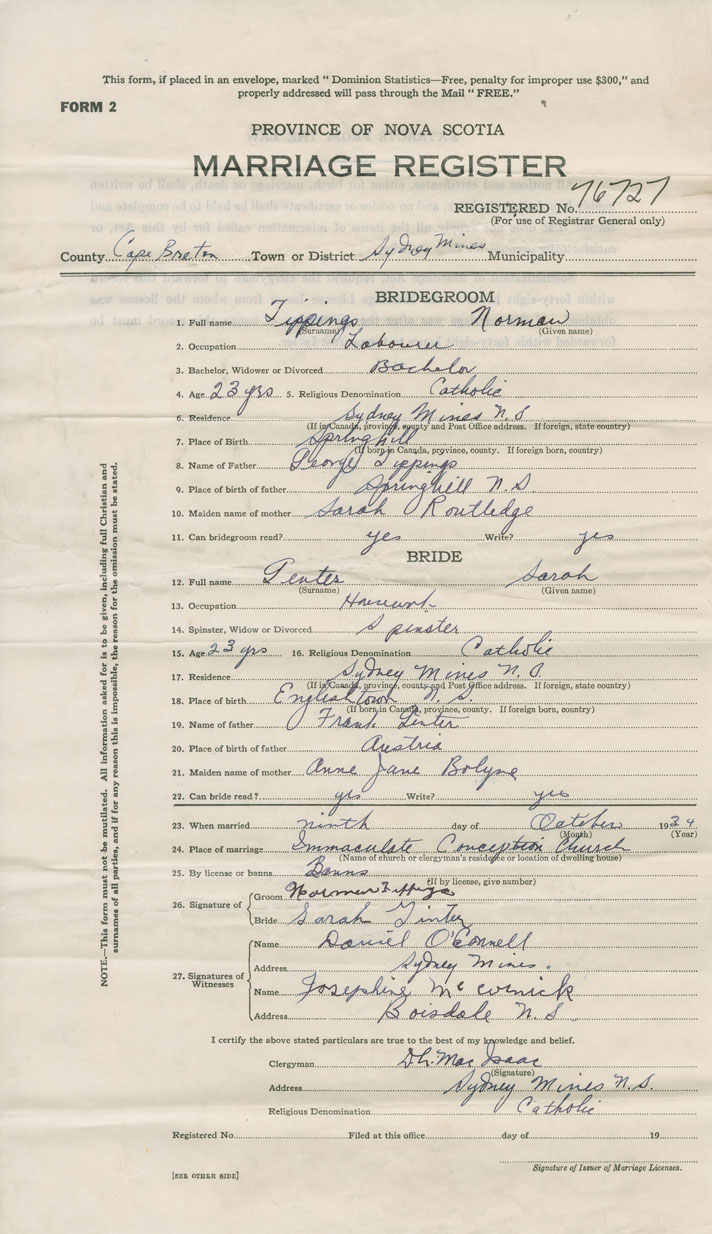 This form, if placed in an envelope, marked "Dominion Statistics—Free, penalty for improper use $300," and
properly addressed will pass through the Mail "FREE."
FORM 2
PROVINCE OF NOVA SCOTIA
MARRIAGE REGISTER
REGISTERED No. 76727
(For use of Registrar General only)
County Cape Breton Town or District Sydney Mines Municipality
BRIDEGROOM
1. Full name Tippings Norman
(Surname) (Given name)
2. Occupation Labourer
3. Bachelor, Widower or Divorced Bachelor
4. Age 23 yrs 5. Religious Denomination Catholic
6. Residence Sydney Mines N.S
(If in Canada, province, county and Post Office address. If foreign, state country)
7. Place of Birth Springhill
(If born in Canada, province, county. If foreign born, country)
8. Name of Father George Tippings
9. Place of birth of father Springhill N.S.
10. Maiden name of mother Sarah Routledge
11. Can bridegroom read? yes Write? yes
BRIDE
12. Full name Penter Sarah
(Surname) (Given name)
13. Occupation Housewk.
14. Spinster, Widow or Divorced Spinster
15. Age 23 yrs 16. Religious Denomination Catholic
17. Residence Sydney Mines N.S.
(If in Canada, province, county and Post Office address. If foreign, state country)
18. Place of birth Englishtown N.S.
(If born in Canada, province, county. If foreign born, country)
19. Name of father Frank
20. Place of birth of father Austria
21. Maiden name of mother Anne Jane
22. Can bride read? yes Write? yes
23. When married ninth day of October 1934
(Month) (Year)
24. Place of marriage Immaculate Conception Church
(Name of church or clergyman's residence or location of dwelling house)
25. By license or banns Banns
(If by license, give number)
26. Signature of
Groom Norman Tippings
Bride Sarah
27. Signatures of Witnesses
Name Daniel O'Connell
Address Sydney Mines.
Name Josephine McCormick
Address Boisdale N.S.
I certify the above stated particulars are true to the best of my knowledge and belief.
Clergyman MacIsaac
(Signature)
Address Sydney Mines N.S.
Religious Denomination Catholic
Registered No. Filed at this office day of 19
Signature of Issuer of Marriage Licenses.
[SEE OTHER SIDE]
NOTE.—This form must not be mutilated. All information asked for is to be given, including full Christian and
surnames of all parties, and if for any reason this is impossible, the reason for the omission must be stated.